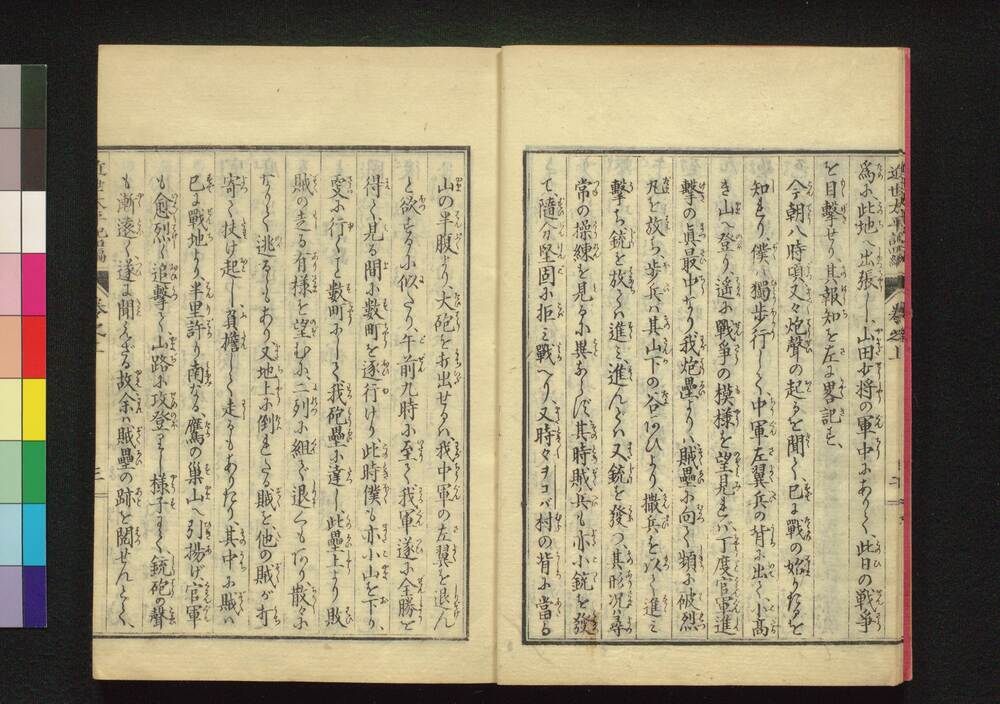 為に此地へ出張し、山田少将の軍中にありて、此日の戦争
を目撃せり、其報知を左に畧記す、
今朝八時頃又々炮聲の起るを聞く已に戰の始りたるを
知れり、僕ハ獨歩行して中軍左翼兵の背に出て、小高
き山へ登り遥に戰争の模様を望見れバ丁度官軍進
撃の真最中なり我炮壘よりハ賊壘に向て頻に破烈
丸を放ち、歩兵ハ其山下の谷あひより、撒兵を以て進ミ
撃ち銃を放てハ進ミ、進んてハ又銃を發つ、其形况尋
常の操練を見るに異ならず、其時賊兵も亦小銃を發
て、隨分堅固に拒ミ戰へり、又時々ヲコバ村の背に當る
山の半腹より、大砲を打出せるハ我中軍の左翼を退ん
と欲するに似たり、午前九時に至て、我軍遂に全勝を
得て、見る間に数町を逐行けり此時僕も亦小山を下り、
受に行くこと数町にして我砲壘に達し、此壘上より敗
賊の走る有様を望むに、二列に組て退くもあり、散々に
なりて逃るもあり又地上に倒れたる賊を、他の賊が打
寄て扶け起し、負擔して走るもありたり、其中に賊ハ
已に戰地より、半里許り南なる、鷹の巣山へ引揚げ、官軍
も愈烈く追撃て山路に攻登りし様子にて、銃砲の聲
も漸遠く遂に聞えざる故、余ハ賊壘の跡を閲せんとて、